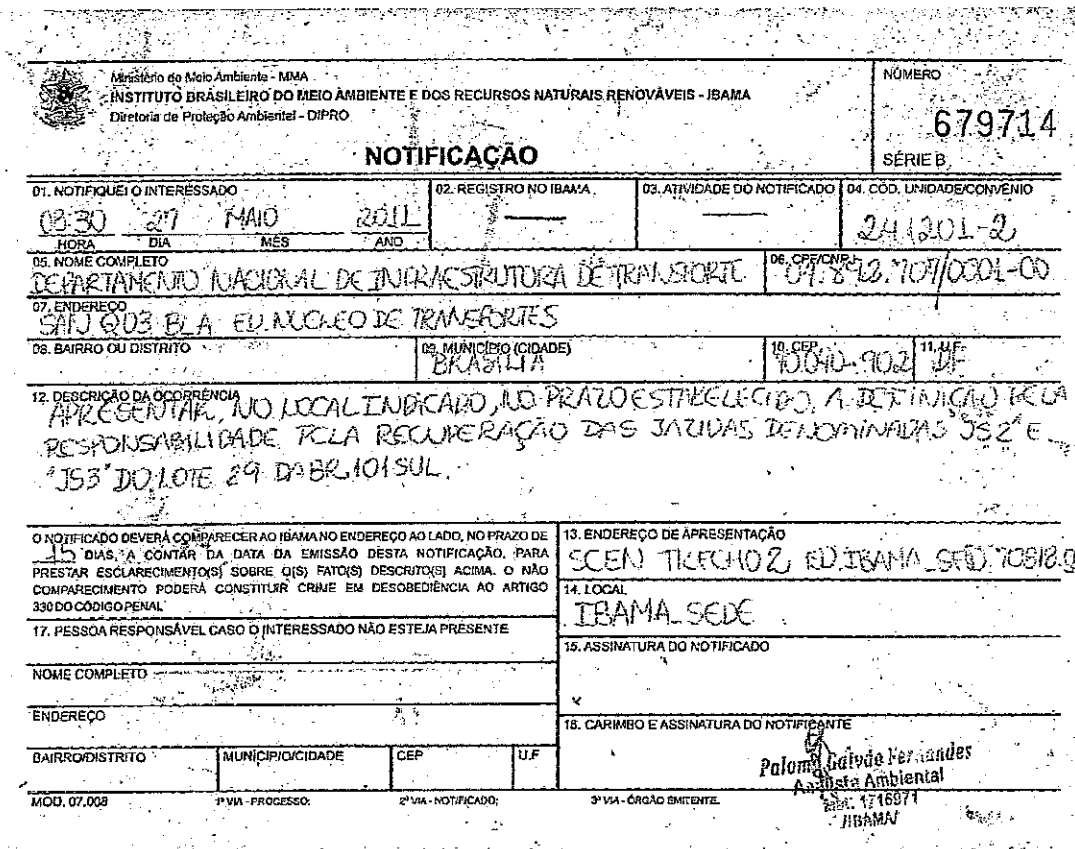 Ministério do Meio Ambiente - MMA
INSTITUTO BRASILEIRO DO MEIO AMBIENTE E DOS RECURSOS NATURAIS RENOVÁVEIS - IBAMA
Diretoria de Proteção Ambiental - DIPRO
NOTIFICAÇÃO
NÚMERO
679714
SÉRIE B
01. NOTIFIQUEI O INTERESSADO
27 MAIO 2011
HORA DIA MÊS ANO
02. REGISTRO NO IBAMA
03. ATIVIDADE DO NOTIFICADO
04. CÓD. UNIDADE/CONVÊNIO
24.1201-2
05. NOME COMPLETO
DEPARTAMENTO NACIONAL DE INFRAESTRUTURA DE TRANSPORTE
06. CPF/CNPJ
/0001-00
07. ENDEREÇO
SAN Q03 BL A ED. NUCLEO DE TRANSPORTES
08. BAIRRO OU DISTRITO
09. MUNICÍPIO (CIDADE)
BRASÍLIA
10. CEP
70040-902
11. U.F.
DF
12. DESCRIÇÃO DA OCORRÊNCIA
APRESENTAR, NO LOCAL INDICADO, NO PRAZO ESTABELECIDO, A DEFINIÇÃO PELA
RESPONSABILIDADE PELA RECUPERAÇÃO DAS JAZIDAS DENOMINADAS "JS2" E
"JS3" DO LOTE 29 DA BR 101 SUL.
O NOTIFICADO DEVERÁ COMPARECER AO IBAMA NO ENDEREÇO AO LADO, NO PRAZO DE
15 DIAS, A CONTAR DA DATA DA EMISSÃO DESTA NOTIFICAÇÃO, PARA
PRESTAR ESCLARECIMENTO(S) SOBRE O(S) FATO(S) DESCRITO(S) ACIMA. O NÃO
COMPARECIMENTO PODERÁ CONSTITUIR CRIME EM DESOBEDIÊNCIA AO ARTIGO
330 DO CÓDIGO PENAL
13. ENDEREÇO DE APRESENTAÇÃO
SCEN TRECHO 2, ED. IBAMA_SEDE 70818.9
14. LOCAL
IBAMA_SEDE
17. PESSOA RESPONSÁVEL CASO O INTERESSADO NÃO ESTEJA PRESENTE
15. ASSINATURA DO NOTIFICADO
x
NOME COMPLETO
ENDEREÇO
16. CARIMBO E ASSINATURA DO NOTIFICANTE
Paloma Galvão Fernandes
Analista Ambiental
Mat. 1716971
IBAMA
BAIRRO/DISTRITO
MUNICÍPIO/CIDADE
CEP
U.F
MOD. 07.008
1ª VIA - PROCESSO;
2ª VIA - NOTIFICADO;
3ª VIA - ÓRGÃO EMITENTE.